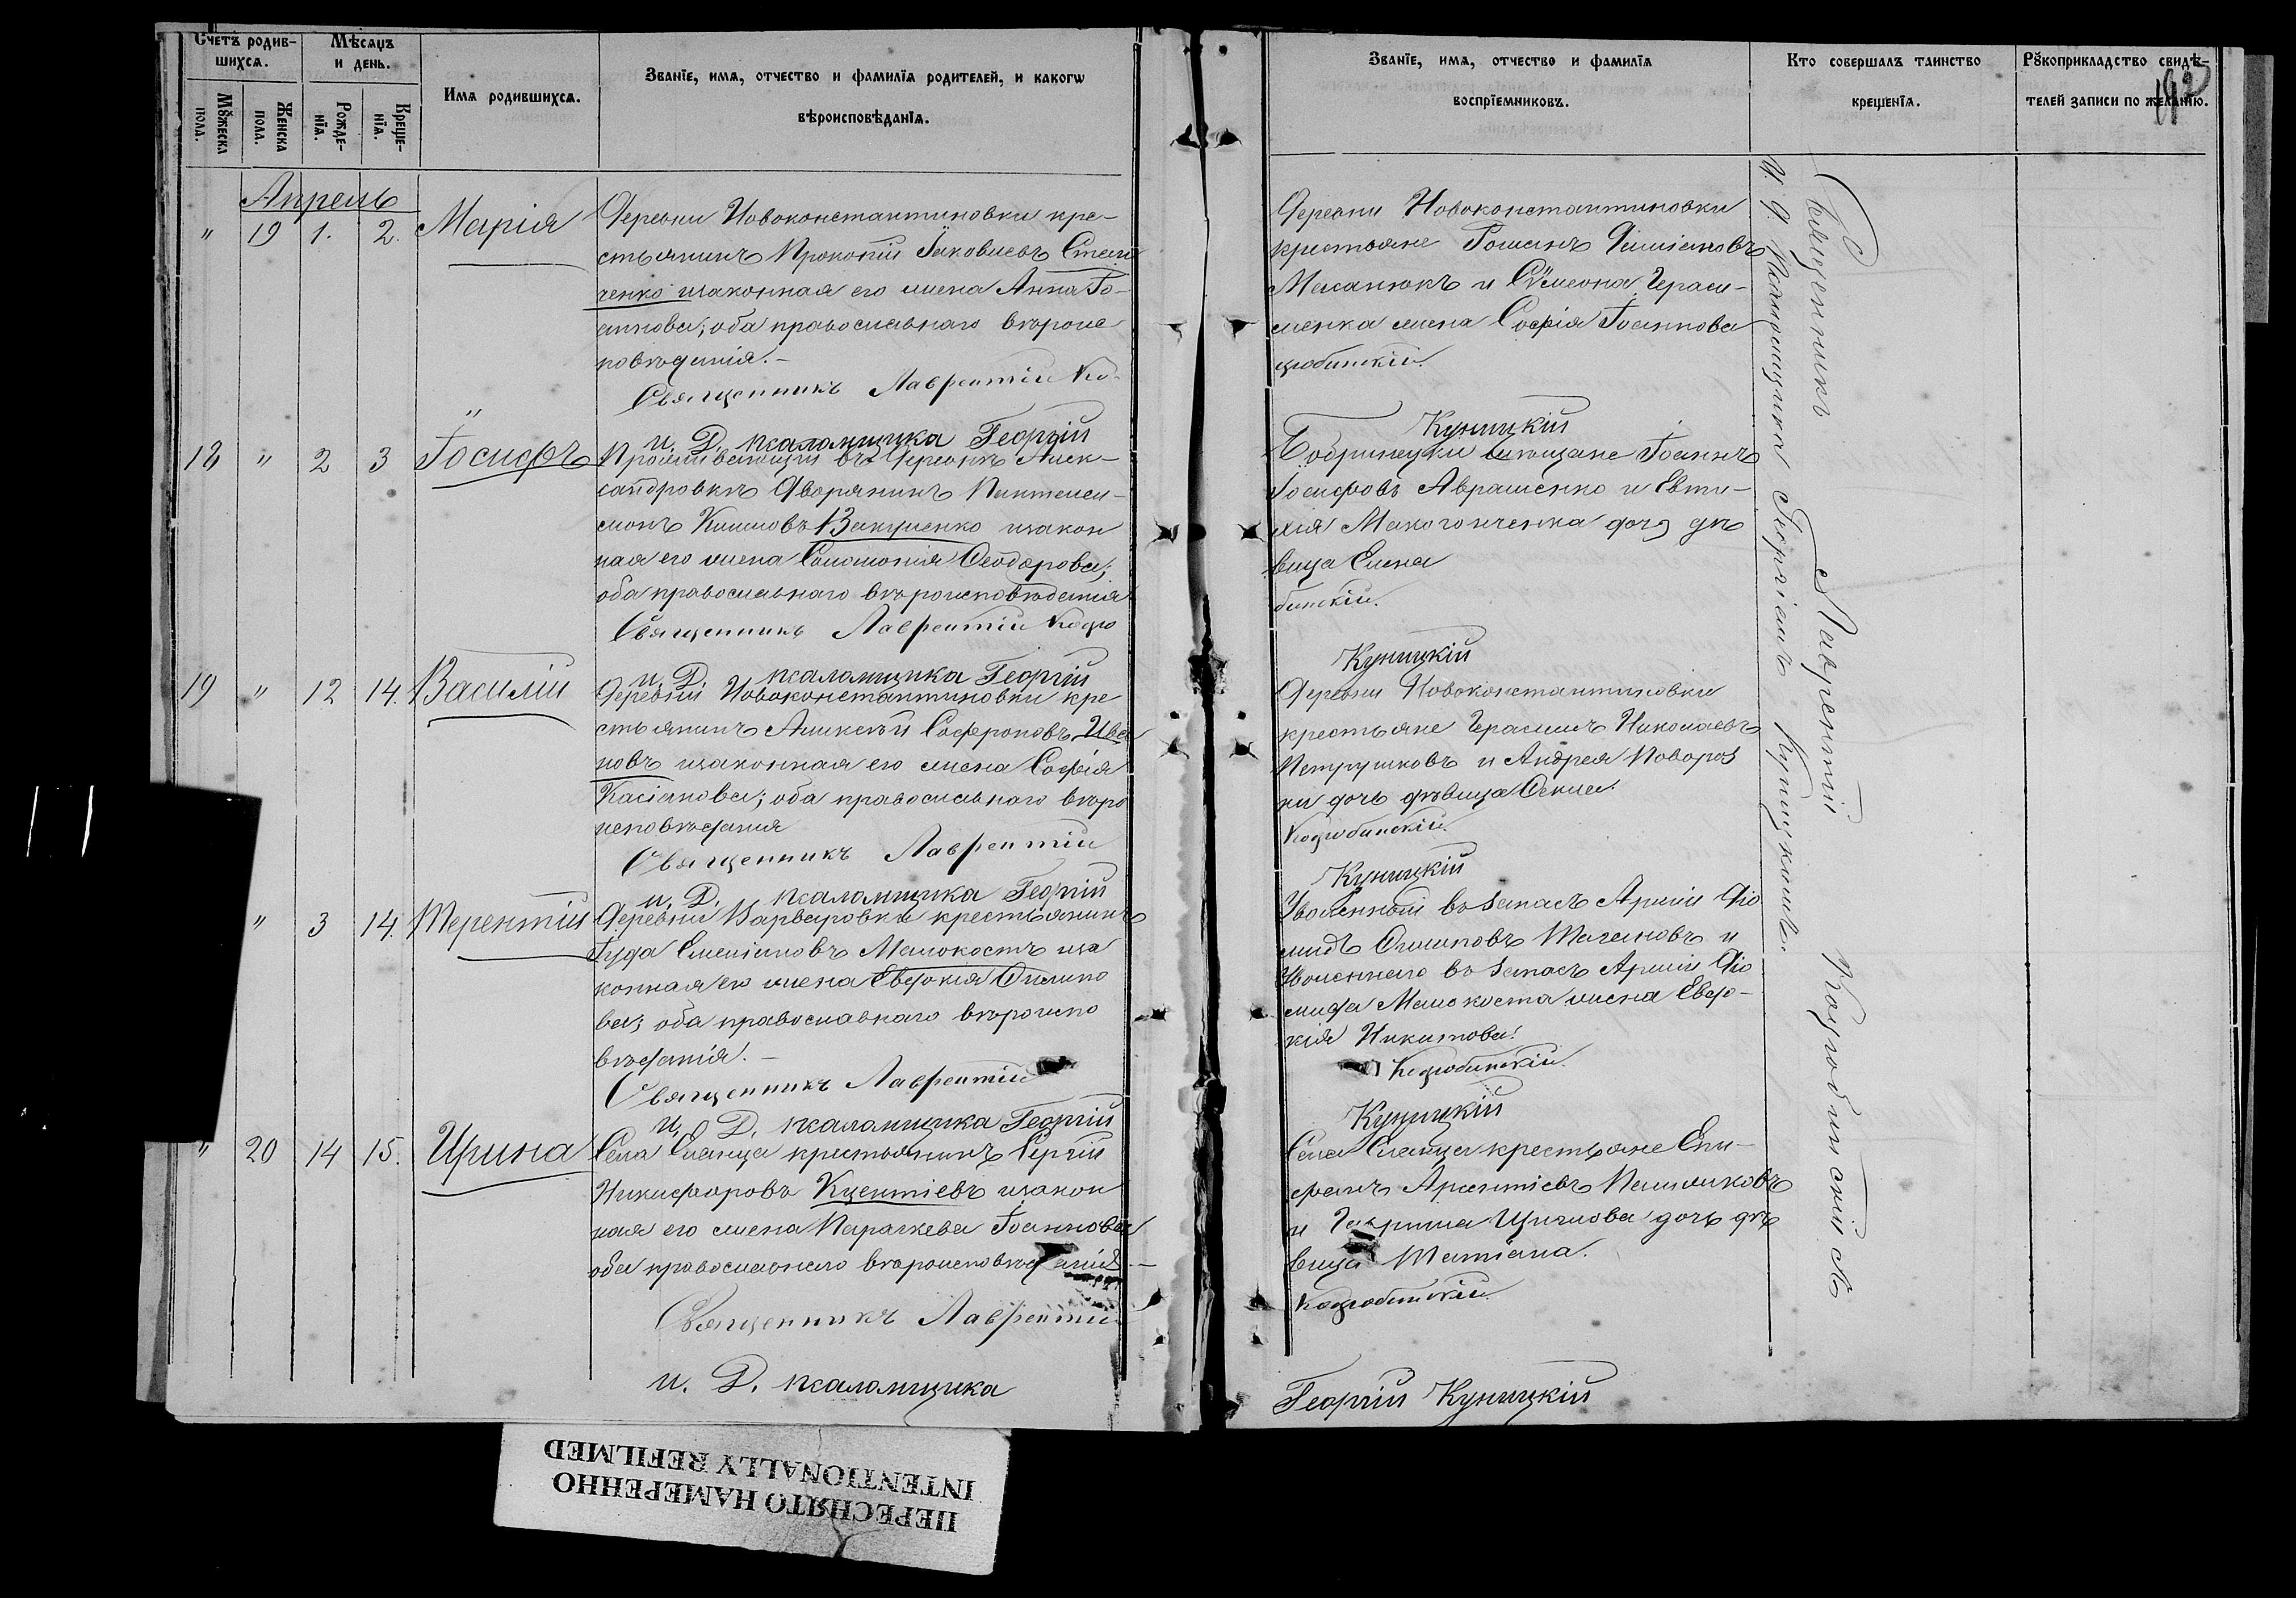 Счетъ родив-
шихся.
Мѣсяцъ
и день.
Имя родившихся.
Званіе, имя, отчество и фамилія родителей, и какогѡ
вѣроисповѣданія.
Мꙋжеска
пола.
Женска
пола.
Рожде-
нія.
Креще-
нія.
Апрель
" 19 1. 2. Марія
Деревни Новоконстантиновки кре-
стьянинъ Прокопій Іаковлевъ
ченко и законная его жена Анна Іо-
аннова; оба православнаго вѣроис
повѣданія.-
Священникъ Лаврентій Ко-
и. Д. псаломщика Георгій
18 " 2 3 Іосифъ
Проживающій въ деревнѣ Алек-
сандровкѣ дворянинъ Пантелеи-
монъ Вакуленко и закон
ная его жена Соломонія Феодорова;
оба православнаго вѣроисповѣданія
Священникъ Лаврентій Кодю
и. Д. псаломщика Георгій
19 " 12 14. Василій
Деревни Новоконстантиновки кре
стьянинъ Алексѣй Софроновъ Ива
новъ и законная его жена Софія
Касіанова; оба православнаго вѣро
исповѣданія
Священникъ Лаврентій
и. Д. псаломщика Георгій
" 3 14. Терентій
Деревни Варваровки крестьянинъ
Іуда Малокостъ и за
конная его жена Евдокія Филипо
ва; оба православнаго вѣроиспо
вѣданія.-
Священникъ Лаврентій
и. Д. псаломщика Георгій
" 20 14 15. Ирина
Села Еланца крестьянинъ Сергій
Никифоровъ и закон
ная его жена Параскева Іоаннова
оба православнаго вѣроисповѣданія.-
Священникъ Лаврентій
и. Д. псаломщика
Званіе, имя, отчество и фамилія
воспріемниковъ.
Кто совершалъ таинство
крещенія.
Рꙋкоприкладство свидѣ-
телей записи по желанію.
192
Деревни Новоконстантиновки
крестьяне Романъ
и Сѵмеона Гераси-
менка жена Софія Іоаннова
дюбинскій.
Куницкій
Бобринецкіи мѣщане Іоаннъ
Іосифовъ Авраменко и Евти-
хія Макогонченка дочь дѣ
вица Елена
бинскій.
Куницкій
Деревни Новоконстантиновки
крестьяне Герасимъ Николаевъ
Петрушковъ и АндреяПовороз
ки дочь дѣвица
Кодюбинскій.
Куницкій
Уволенный въ запасъ Арміи Діо
мидъ и
Уволеннаго въ запасъ Арміи Діо
мида Малокоста жена Евдо-
кія Никитова.
Кодюбинскій.
Куницкій
Села Еланца крестьяне Епи-
фанъ
и Гавриила дочь дѣ
вица Татіана.
Кодюбинскій.
Георгій Куницкій
Священникъ Лаврентій Кодюбинскій съ
И. Д. Псаломщика Георгіемъ Куницкимъ.
ПЕРЕСНЯТО НАМЕРЕННО
INTENTIONALLY REFILMED